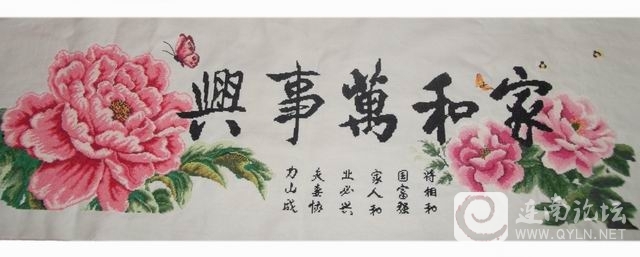 家和萬事興
将相和
国富强
家人和
业必兴
夫妻协
力山成
连南论坛
WWW.QYLN.NET